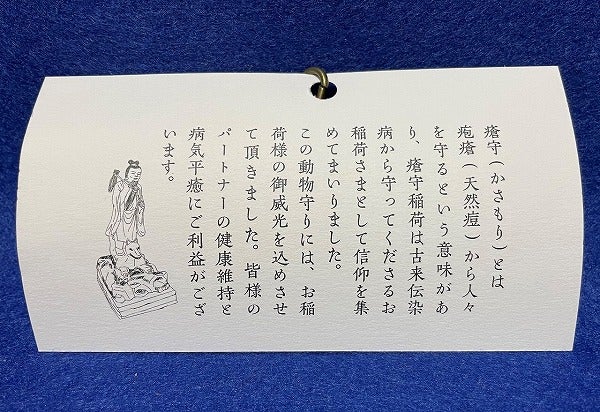 瘡守(かさもり)とは
疱瘡(天然痘)から人々
を守るという意味があ
り、瘡守稲荷は古来伝染
病から守ってくださるお
稲荷さまとして信仰を集
めてまいりました。
この動物守りには、お稲
荷様の御威光を込めさせ
て頂きました。皆様の
パートナーの健康維持と
病気平癒にご利益がござ
います。